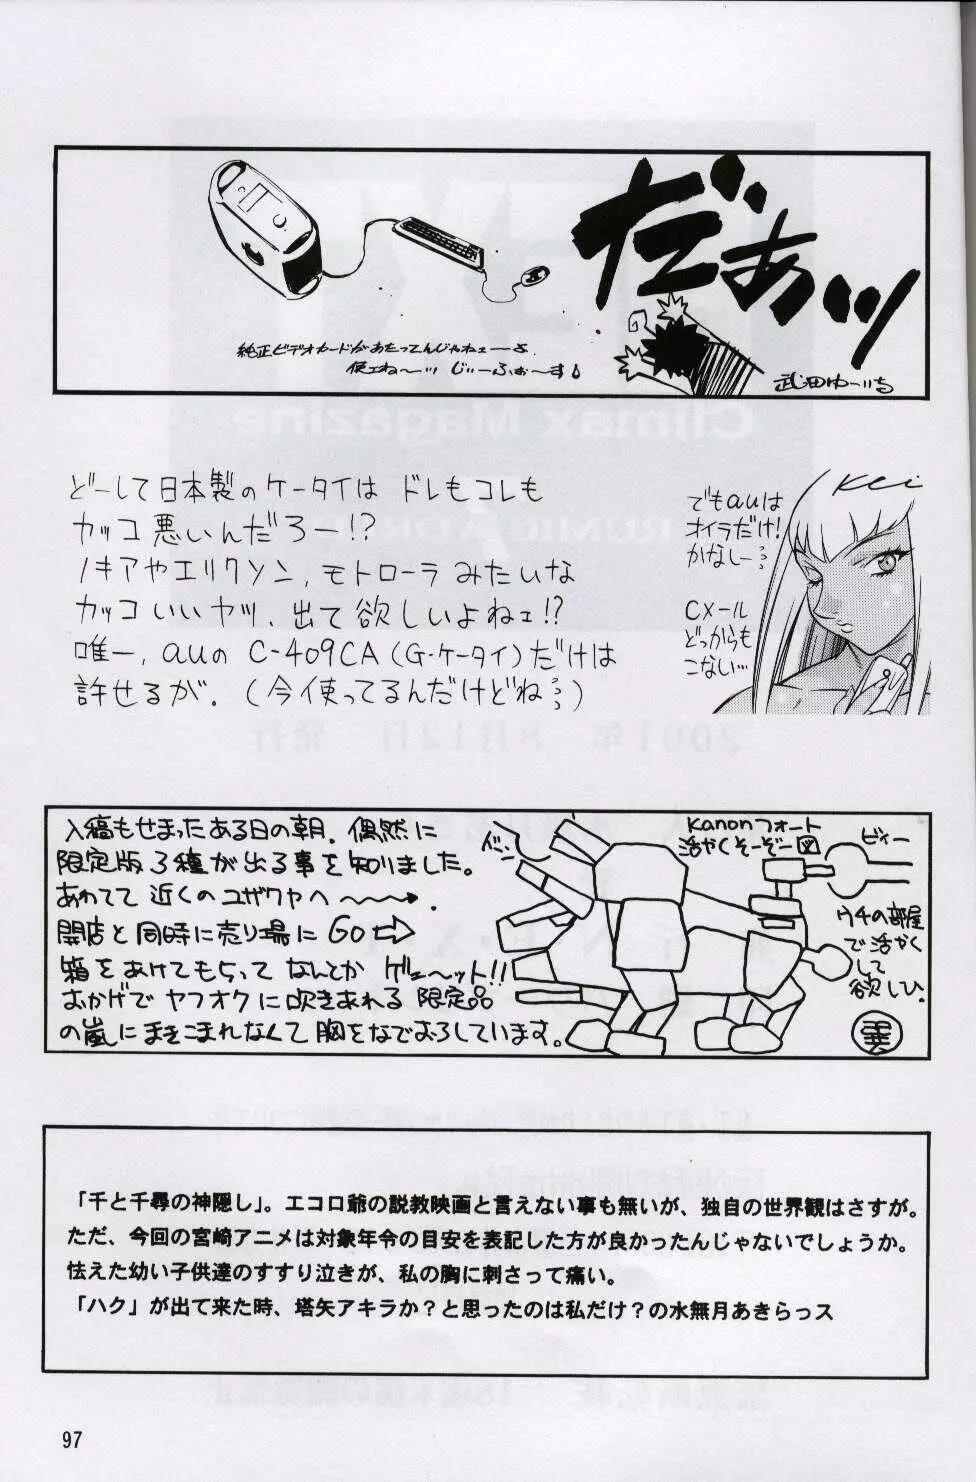 だあッ
純正ビデオカードがあたってんじゃねェーよ
使エね〜ッ じぃーふぉ〜す
武田ゆーいち
どーして日本製のケータイは ドレもコレも
カッコ悪いんだろー!?
ノキアやエリクソン,モトローラ みたいな
カッコ いい ヤツ、出て欲しいよねェ!?
唯一, auの C-409CA (G・ケータイ)だけは
許せるが. (今使ってるんだけどね…)
Kei
でもauは
オイラだけ!
かなしー…
Cメール
どっからも
こない…
入稿もせまったある日の朝. 偶然に
限定版3種が出る事を知りました。
あわてて 近くの ユザワヤへ 〜→.
開店と同時に売り場に GO⇨
箱をあけてもらって なんとか ゲェ〜ット!!
おかげで ヤフオクに吹きあれる 限定品
の嵐にまきこまれなくて 胸をなでおろしています。
Kanonフォート
活やくそーぞー図
ビィー
ウチの部屋
で活やく
して
欲しひ。
「千と千尋の神隠し」。エコロ爺の説教映画と言えない事も無いが、独自の世界観はさすが。
ただ、今回の宮崎アニメは対象年令の目安を表記した方が良かったんじゃないでしょうか。
怯えた幼い子供達のすすり泣きが、私の胸に刺さって痛い。
「ハク」が出て来た時、塔矢アキラか？と思ったのは私だけ？の水無月あきらっス
97